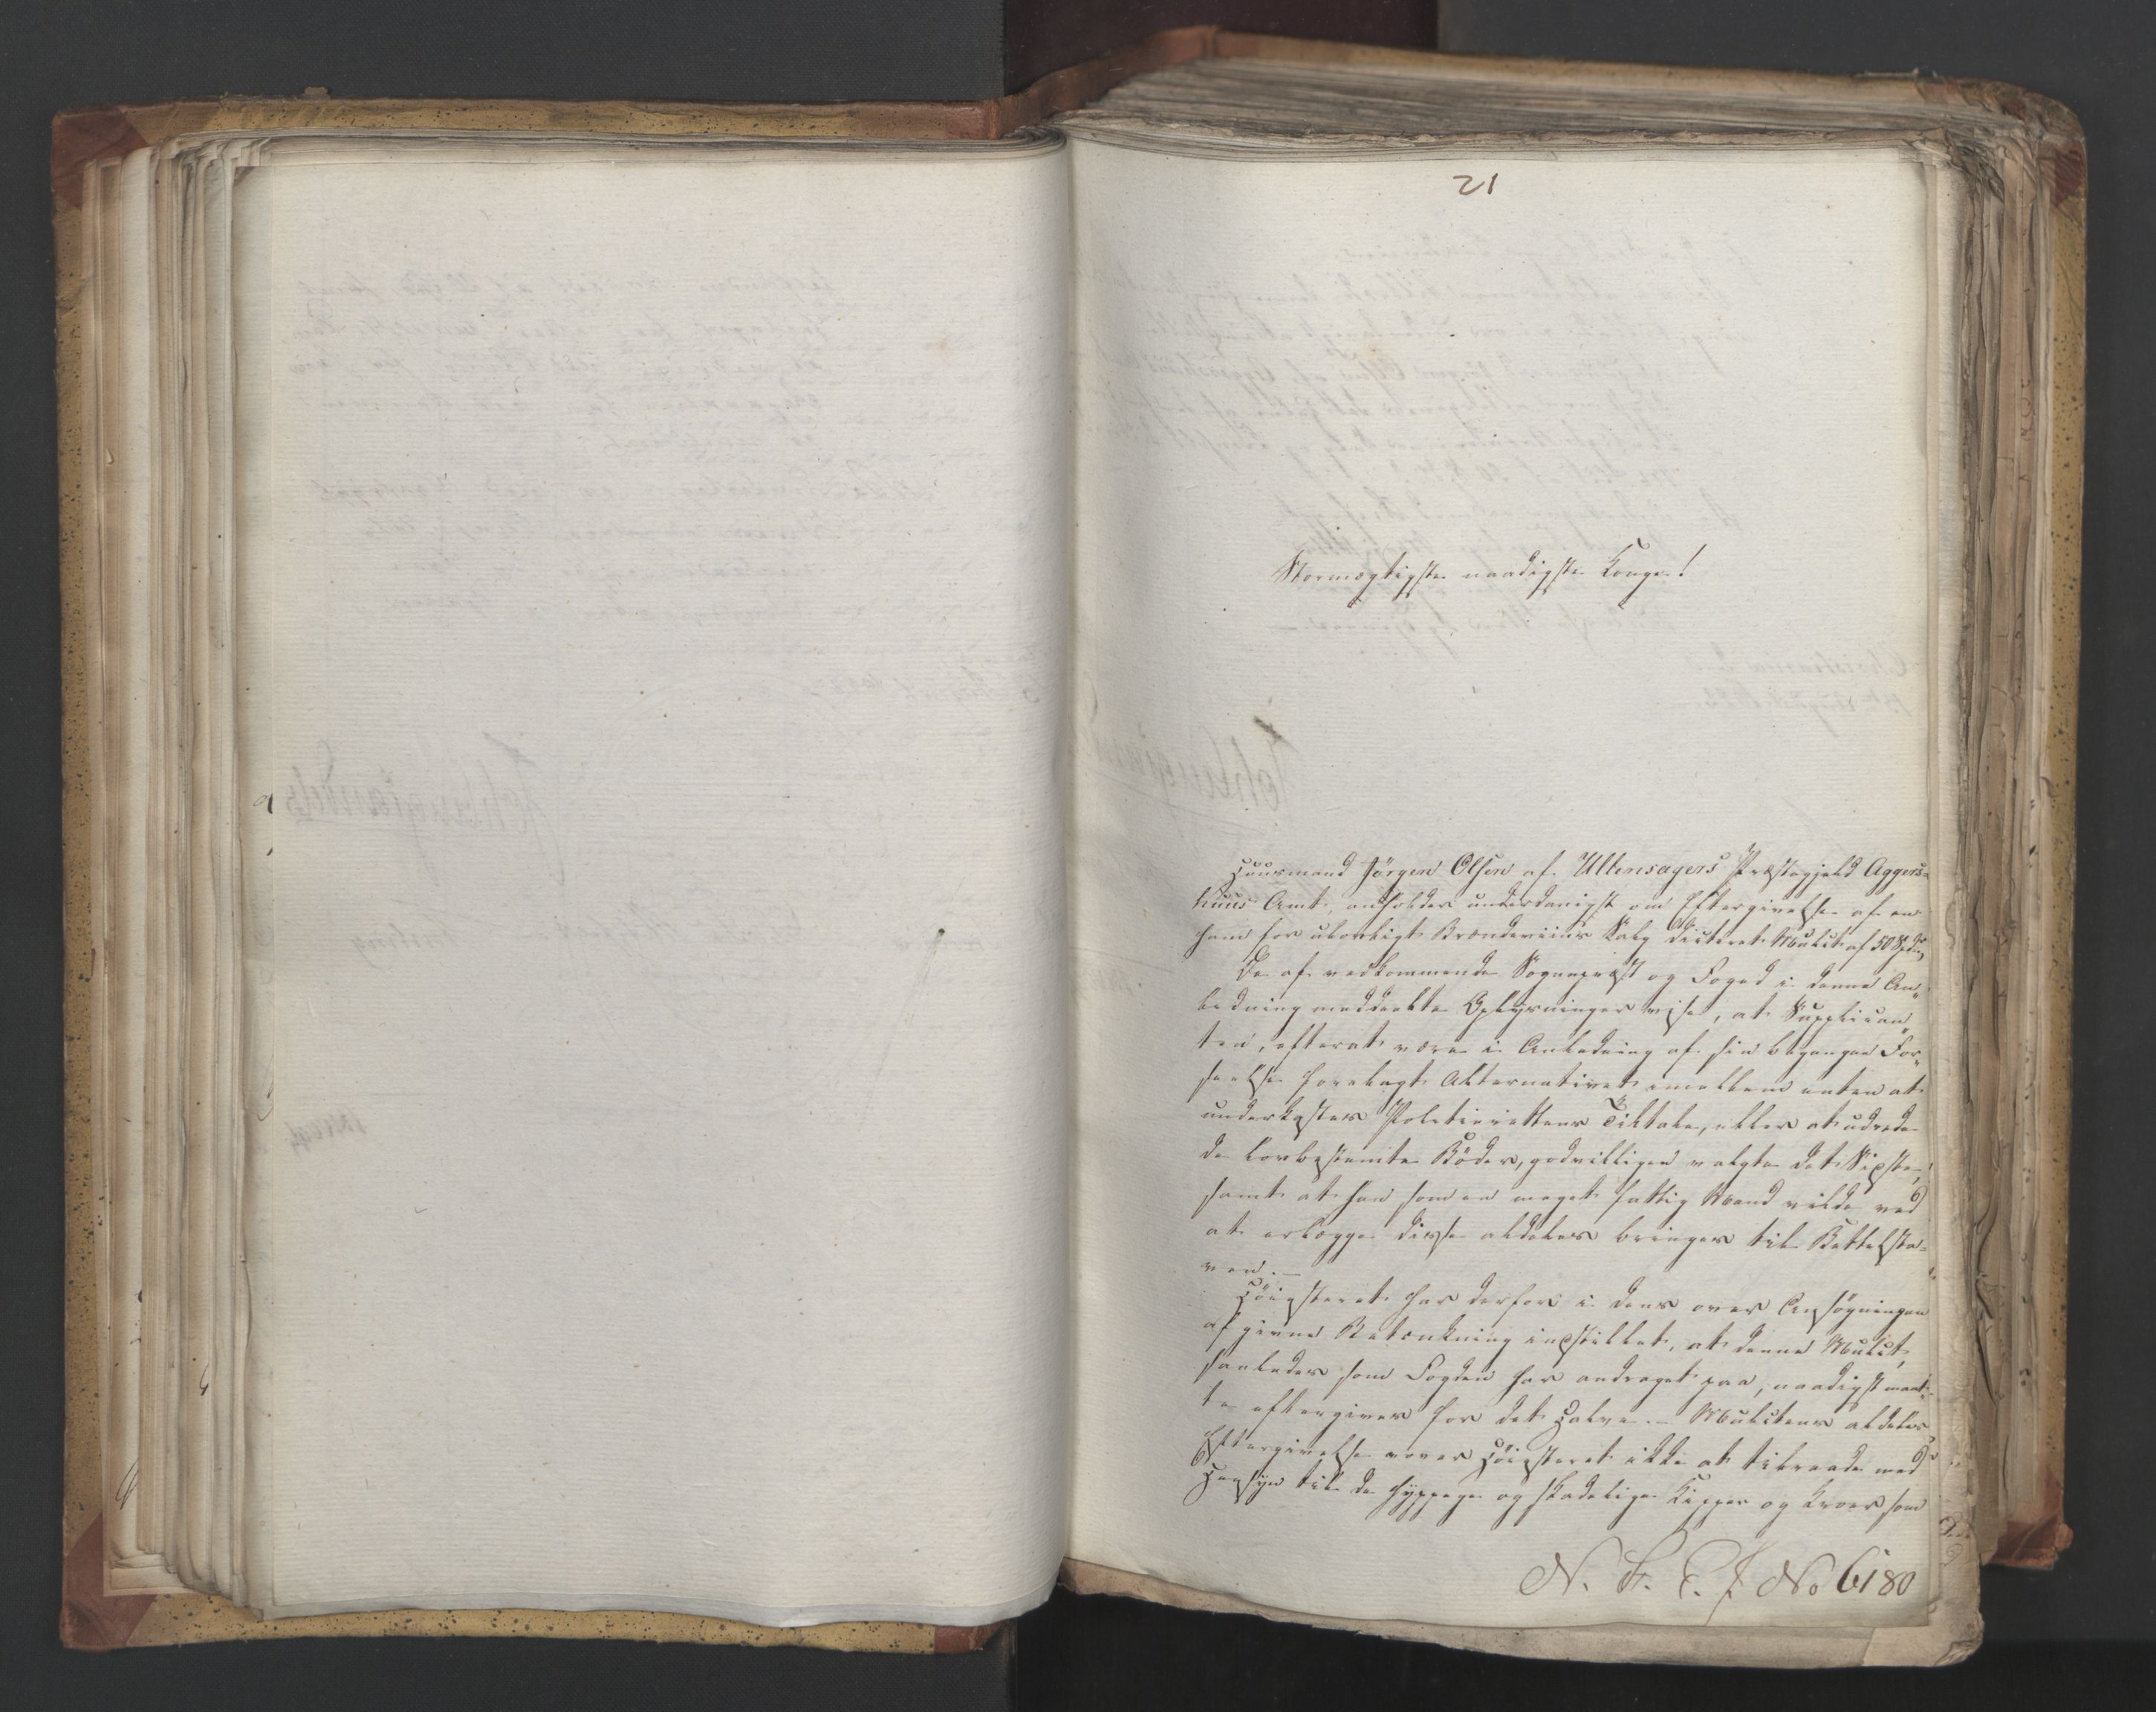 21
Stormægtigste naadigste Konge!
Huusmand Jörgen Olsen af Ullensagers Præstegjeld Aggers-
huus Amt, anholder underdanigst om Eftergivelse af en
ham for ulovligt Brændeviins Salg dicteret Mulct af 50 Spdlr,
De af vedkommende Sognepræst og Foged i denne An-
ledning meddeelte Oplysninger vise, at Supplican-
ten, efterat være i Anledning af sin begangne For-
seelse forelagt Alternativet imellem enten at
underkastes Politierettens Tiltale, eller at udrede
de lovbestemte Böder, godvilligen valgte det Sidste,
samt at han som en meget fattig Mand vilde ved
at erlægge disse aldeles bringes til Bettelsta-
ven. —
Höiesteret har derfor i dens over Ansögningen
afgivne Betænkning indstillet, at denne Mulct,
saaledes som Fogden har andraget paa, naadigst maat-
te eftergives for det Halve. — Mulctens aldeles
Eftergivelse vover Höiesteret ikke at tilraade med
Hensyn til de hyppige og skadelige Kipper og Kroer som
N. F. C. J. No 6180